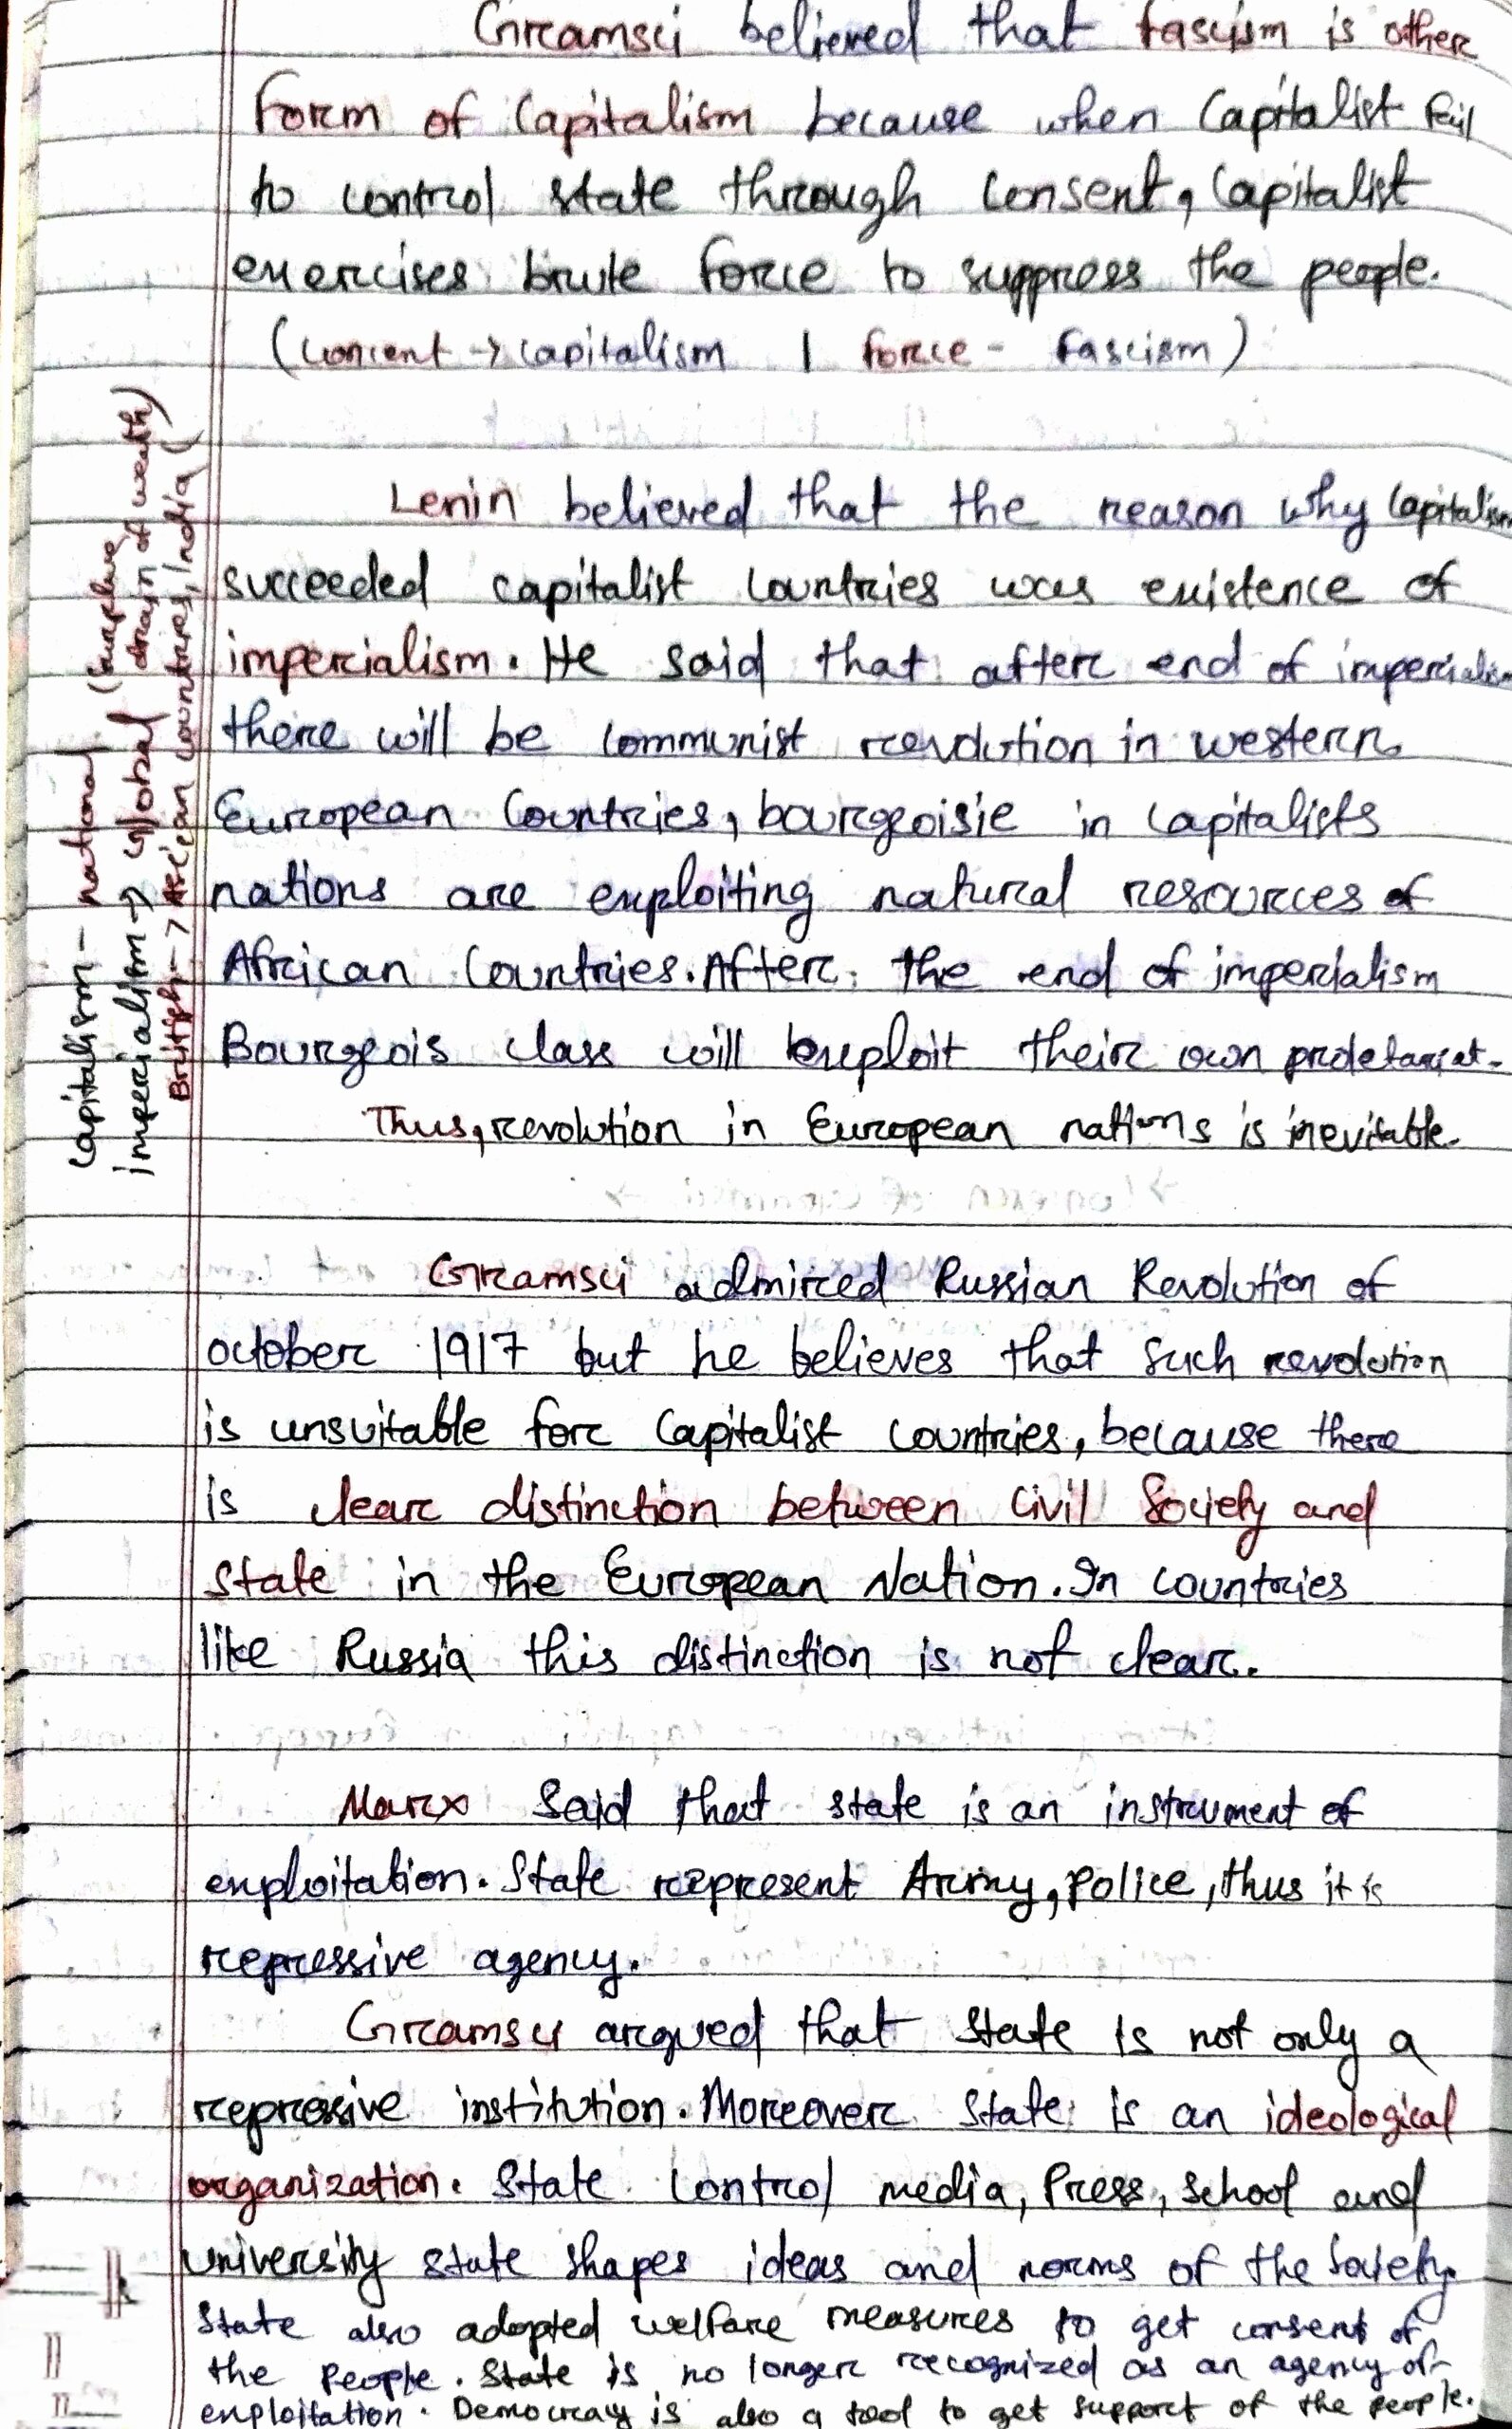 Gramsci believed that fascism is other
form of Capitalism because when Capitalist fail
to control state through consent, Capitalist
exercises brute force to suppress the people.
(concent → capitalism | force - Fascism)
Lenin believed that the reason why Capitalism
succeeded capitalist countries was existence of
imperialism. He said that after end of imperialism
there will be communist revolution in western
European Countries, bourgeoisie in capitalists
nations are exploiting natural resources of
African Countries. After the end of imperialism
Bourgeois class will exploit their own proletariat.
Thus, revolution in European nations is inevitable.
Capitalism - national
imperialism → global (surplus, drain of wealth)
British → African countries, India (
Gramsci admired Russian Revolution of
october 1917 but he believes that such revolution
is unsuitable for Capitalist countries, because there
is clear distinction between Civil Society and
State in the European Nation. In countries
like Russia this distinction is not clear.
Marx Said that state is an instrument of
exploitation. State represent Army, police, thus it is
repressive agency.
Gramsci argued that State is not only a
repressive institution. Moreover State is an ideological
organization. State control media, Press, School and
University state shapes ideas and norms of the Society.
State also adopted welfare measures to get consent of
the people. State is no longer recognized as an agency of
exploitation. Democracy is also a tool to get support of the people.